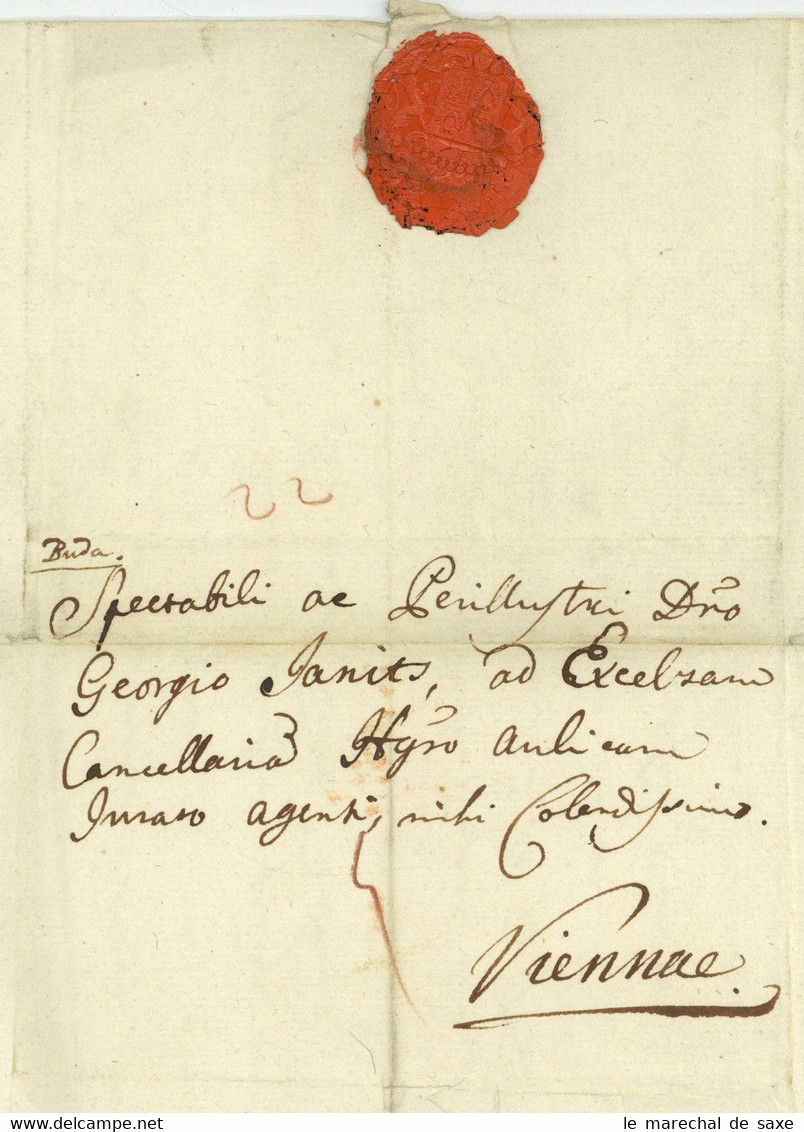 22
Buda.
Spectabili ac Perillustri Dño
Georgio Janits, ad Excelsam
Cancellariã Hgro Aulicam
Jurato agenti, mihi Colendissimo.
Viennae.
le marechal de saxe